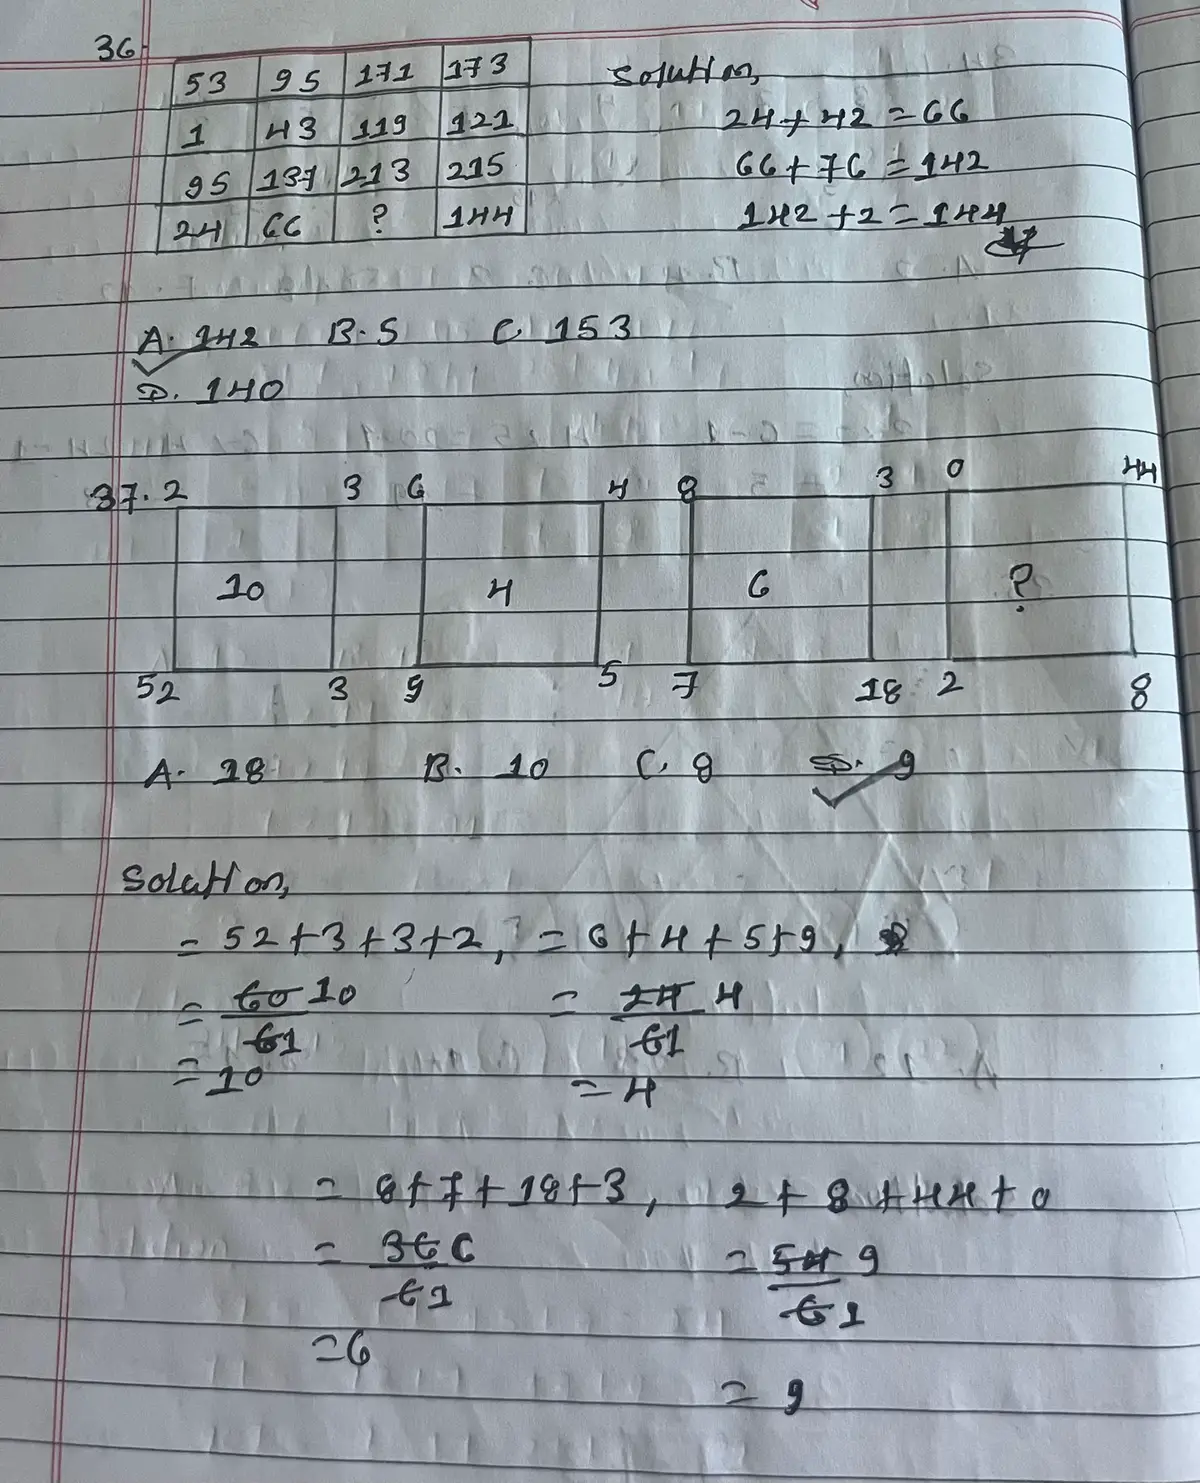 36.
53 95 171 173
1 43 119 121
95 137 213 215
24 66 ? 144
Solution,
24+42=66
66+76=142
142+2=144
A. 142 B. 5 C. 153
D. 140
37. 2 3 6 4 8 3 0 44
10 4 6 ?
52 3 9 5 7 18 2 8
A. 18 B. 10 C. 8 D. 9
Solution,
= 52+3+3+2, = 6+4+5+9,
= 60 10 = 24 4
61 61
= 10 = 4
= 8+7+18+3, 2+8+44+0
= 36 6 = 54 9
61 61
=6
= 9